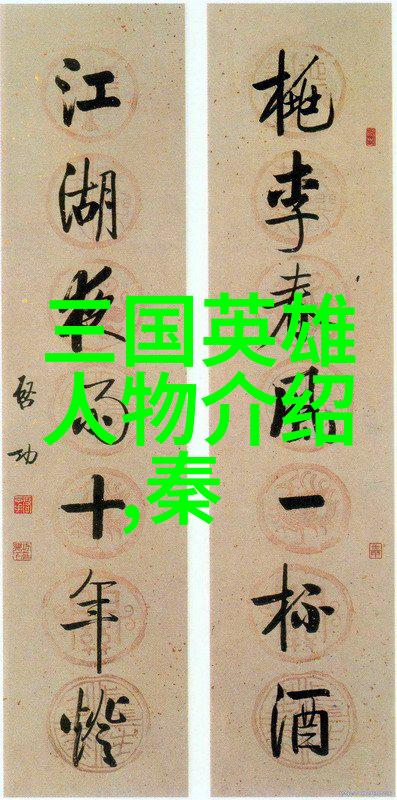 桃李春風一杯酒
江湖夜雨十年燈
启功
三国英雄
人物介绍
,秦